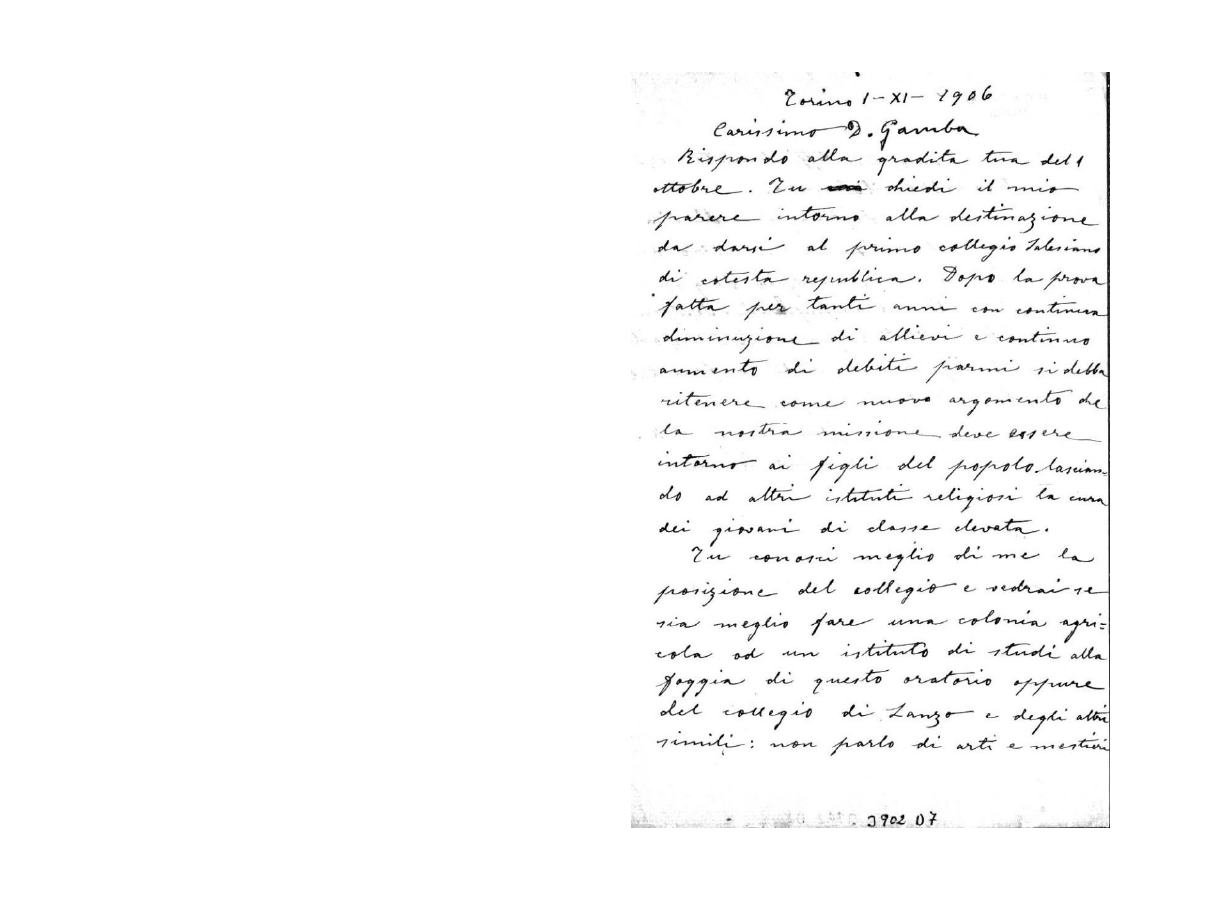 Torino 1-XI-1906
Carissimo D. Gamba
Rispondo alla gradita tua del 1
ottobre. Tu chiedi il mio
parere intorno alla destinazione
da darsi al primo collegio Salesiano
di cotesta republica. Dopo la prova
fatta per tanti anni con continua
diminuzione di allievi e continuo
aumento di debiti parmi si debba
ritenere come nuovo argomento che
la nostra missione deve essere
intorno ai figli del popolo lascian=
do ad altri istituti religiosi la cura
dei giovani di classe elevata.
Tu conosci meglio di me la
posizione del collegio e vedrai se
sia meglio fare una colonia agri=
cola od un istituto di studi alla
foggia di questo oratorio oppure
del collegio di Lanzo e degli altri
simili: non parlo di arti e mestieri
3902 D7